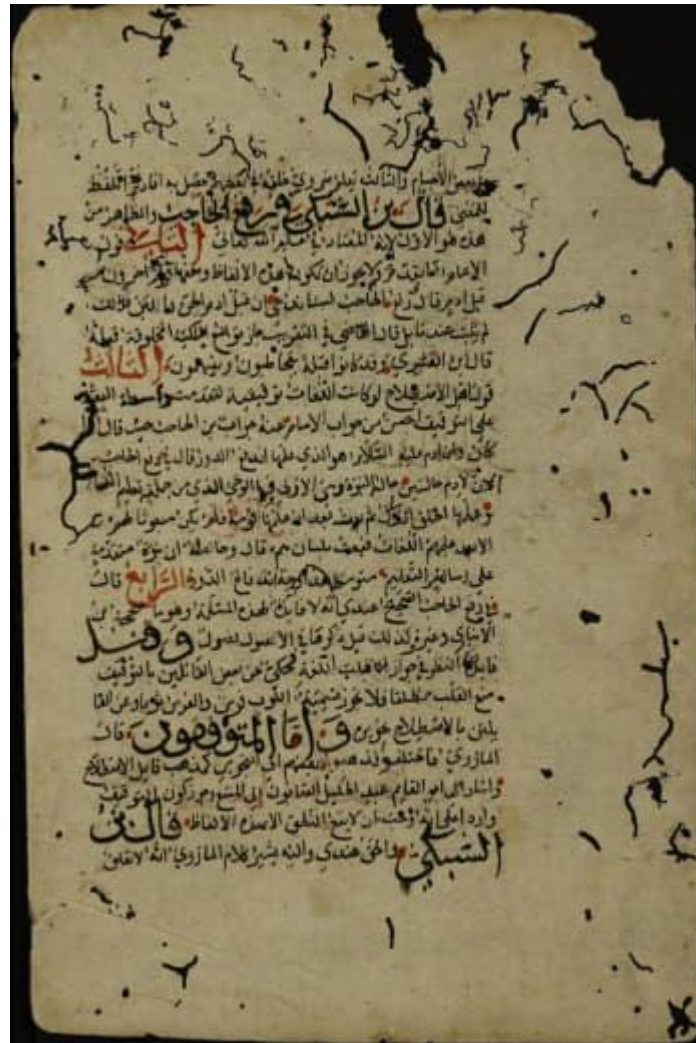 الأجسام والثالث
قال بن السبكي في رفع الحاجب والظاهر من
هو الأول لأنه المعتاد في علم الله تعالى الثاني قول
الإمام
قبل ادم قال في رفع الحاجب لسنا ندعى ان قبل ادم الجن
لم يثبت عندنا بل قال القاضي في التقريب جاز تواضع الملائكة المخلوقة قبله
قال ابن القشيري وقد كانوا قبله يتخاطبون ويفهمون الثالث
قول اهل الاصطلاح لو كانت اللغات توقيفية لتقدمت واسطة البعثة
على التوقيف احسن من جواب الامام عنه جواب بن الحاجب حيث قال اذا
كان ادم عليه السلام هو الذي علمها اندفع الدور قال في رفع الحاجب
لان لادم حالتين حالة النبوة وهي الاولى فيها الوحي الذي من جملته تعليم اللغات
وعلمها الخلق اذ ذاك ثم بعث بعد ان علمها قومه فلم يكن مبعوثا لهم
الا بعد علمهم اللغات فبعث بلسانهم قال وحاصله ان نبوته متقدمة
على رسالته والتعليم متوسط فهذا وجه اندفاع الدور الرابع قال
في رفع الحاجب الصحيح عندي انه لا فائدة لهذه المسئلة وهو ما صححه بن
الانباري وغيره ولذلك قيل ذكرها في الاصول فضول وقيل
فائدتها النظر في جواز قلب اللغة فحكى عن بعض القائلين بالتوقيف
منع القلب مطلقا فلا يجوز تسمية الثوب فرس والفرس ثوبا وعن القا
يلين بالاصطلاح تجويزه واما المتوقفون قال
المازري فاختلفوا فذهب بعضهم الى التجويز كمذهب قايل الاصطلاح
واشار ابو القاسم عبد الجليل الصابوني الى المنع وجوز كون التوقيف
واردا على انه وجب ان لا يقع النطق الا بهذه الالفاظ قال بن
السبكي والحق عندي واليه يشير كلام المازري انه لا تعلق